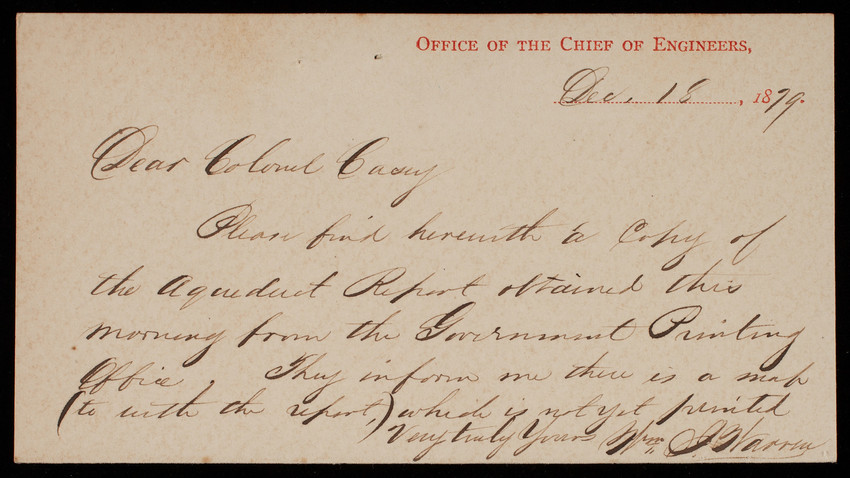 OFFICE OF THE CHIEF OF ENGINEERS,
Dec. 18, 1879.
Dear Colonel Casey
Please find herewith a copy of
the Aqueduct Report obtained this
morning from the Government Printing
Office. They inform me there is a map
(to with the report,) which is not yet printed
Very truly Yours Wm. J. Warren